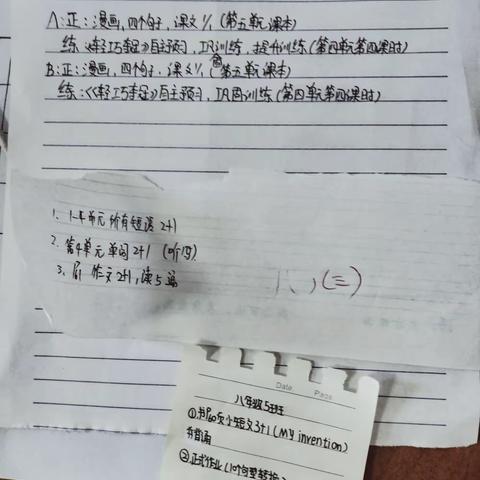 A:正:漫画,四个句子,课文1/1(第五单元课本)
练:《轻巧夺冠》自主预习,巩固训练,提升训练(第四单元第四课时)
B:正:漫画,四个句子,课文1/1(第五单元课本)
练:《轻巧夺冠》自主预习,巩固训练(第四单元第四课时)
1、1-4单元所有短语2+1
2、第4单元单词2+1(听写)
3、作文2+1,读5遍
(三)
Date Page
八年级5班
①书60页小短文3+1(My invention)
并背诵
②正式作业(10个句型转换)